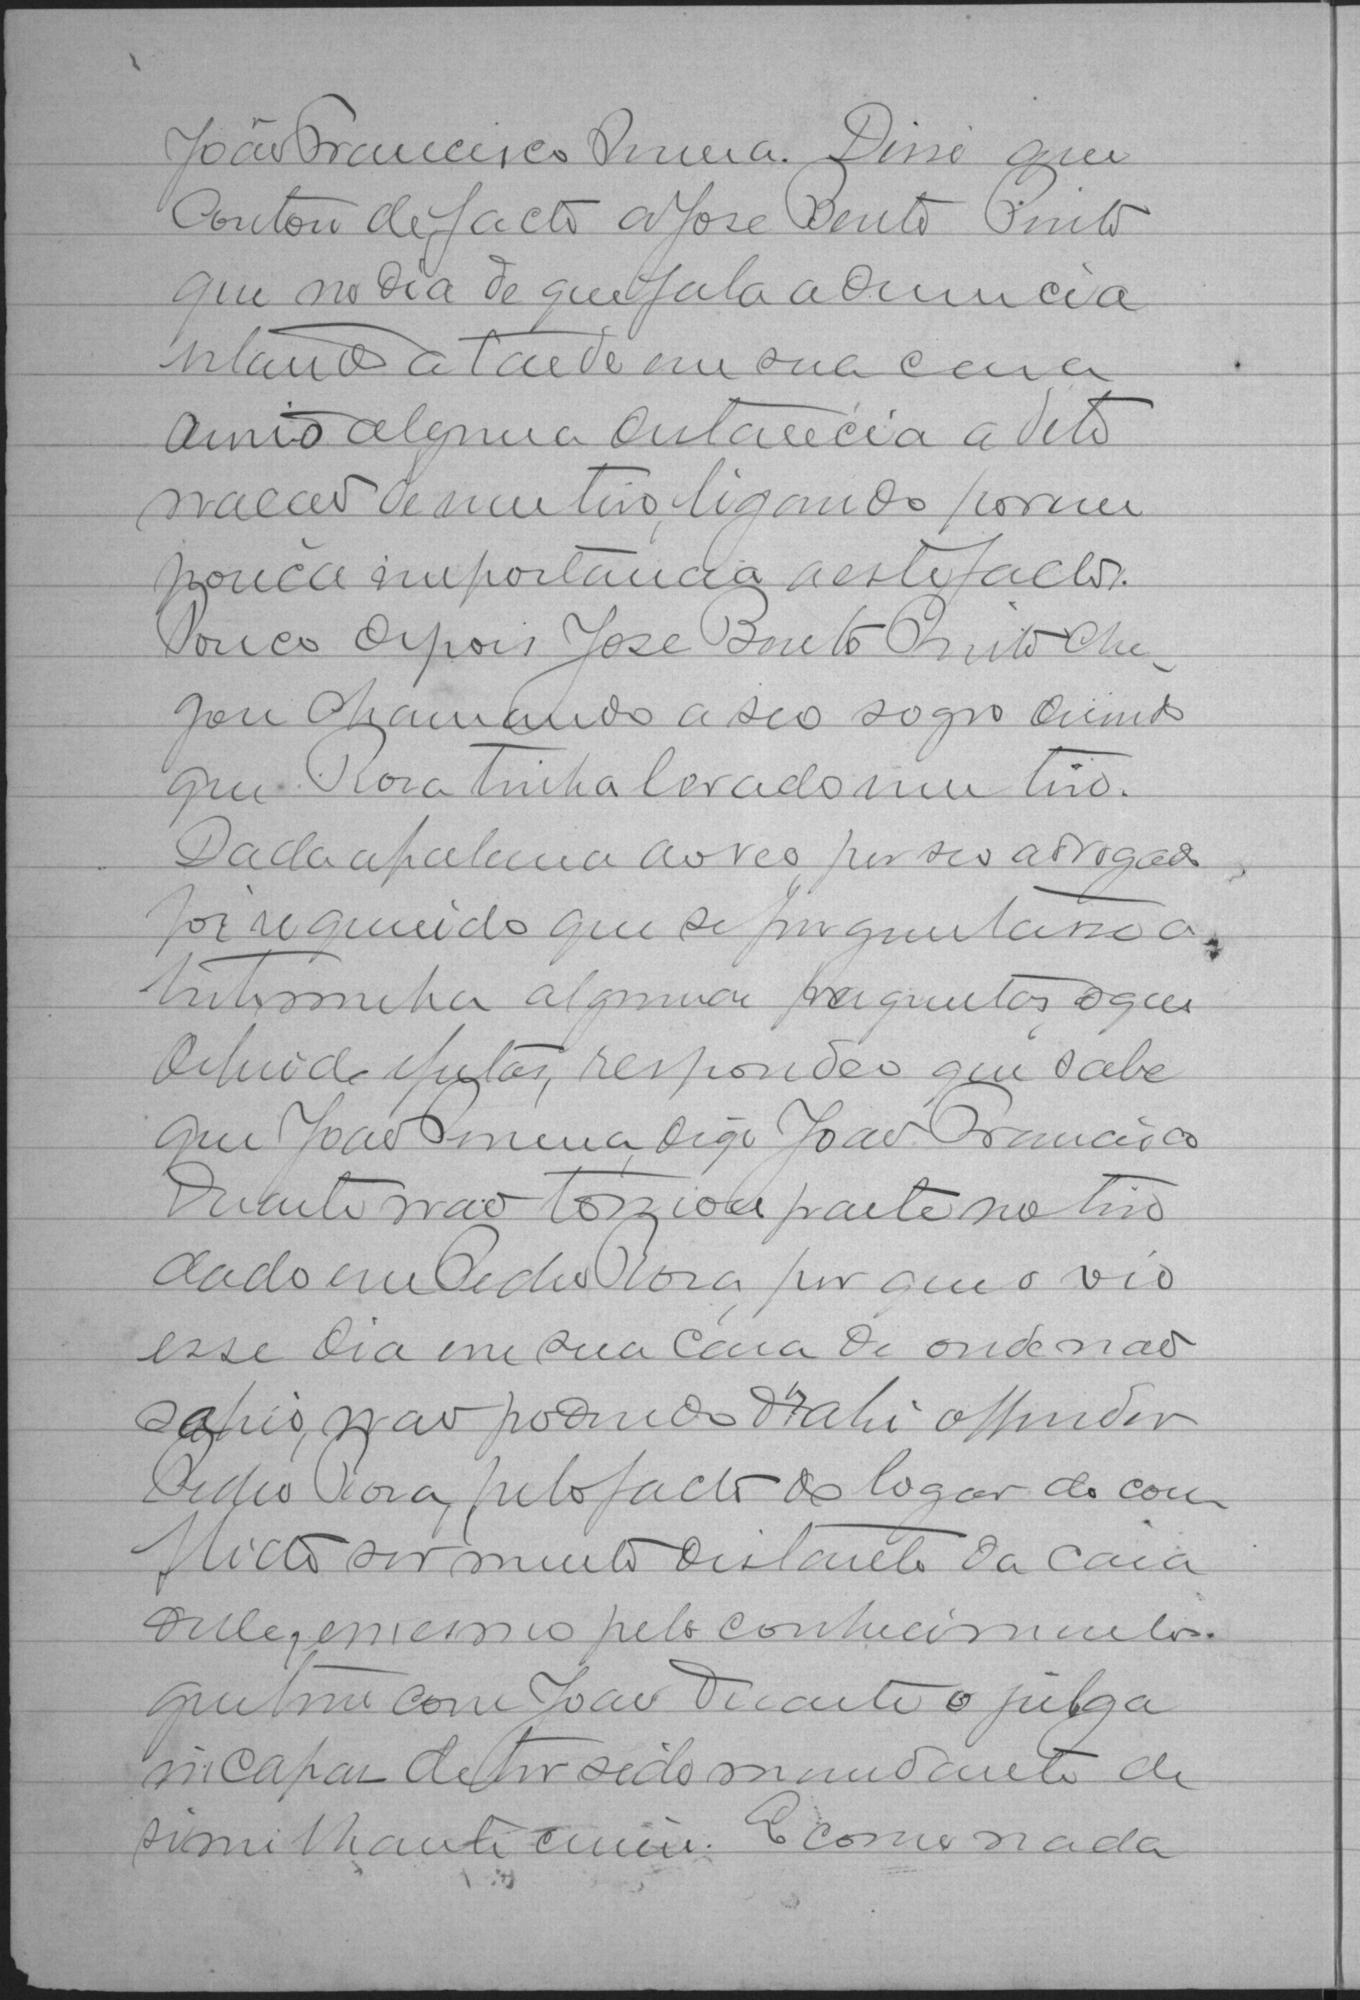 João Francisco Pereira. Disse que
contou de facto a Jose Bento Pinto
que no dia de que fala a denuncia
estando a tarde em sua casa
ouvio alguma distancia a deto
nação de um tiro, ligando porem
pouca importancia a este facto.
Pouco depois Jose Bento Pinto che-
gou chamando a seo sogro dizendo
que Rosa tinha levado um tiro.
Dada a palavra ao reo, por seo advogado,
foi requerido que se perguntasse a
testemunha algumas perguntas, o que
deferido e feitas, respondeo que sabe
que João Pereira, digo João Francisco
Duarte não tomou parte no tiro
dado em Pedro Rosa, por que o vio
esse dia em sua casa de onde não
sahio, não podendo d'ahi offender
Pedro Rosa, pelo facto do logar do con
flicto ser muito distante da casa
delle, e mesmo pelo conhecimento
que tem com João Duarte o julga
incapaz de ter sido mandante de
similhante crime. E como nada